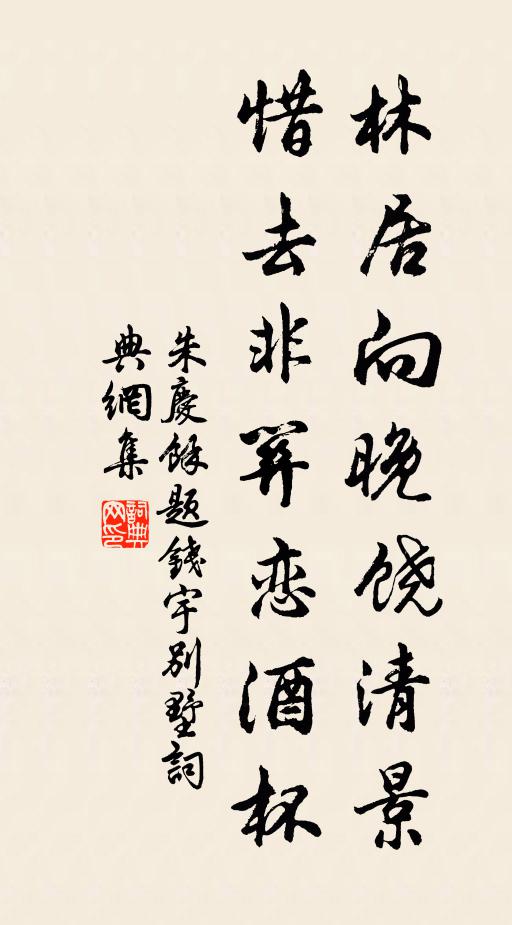 林居向晚饶清景
惜去非关恋酒杯
朱慶餘题錢宇别墅詞
典網集
詞典
网印